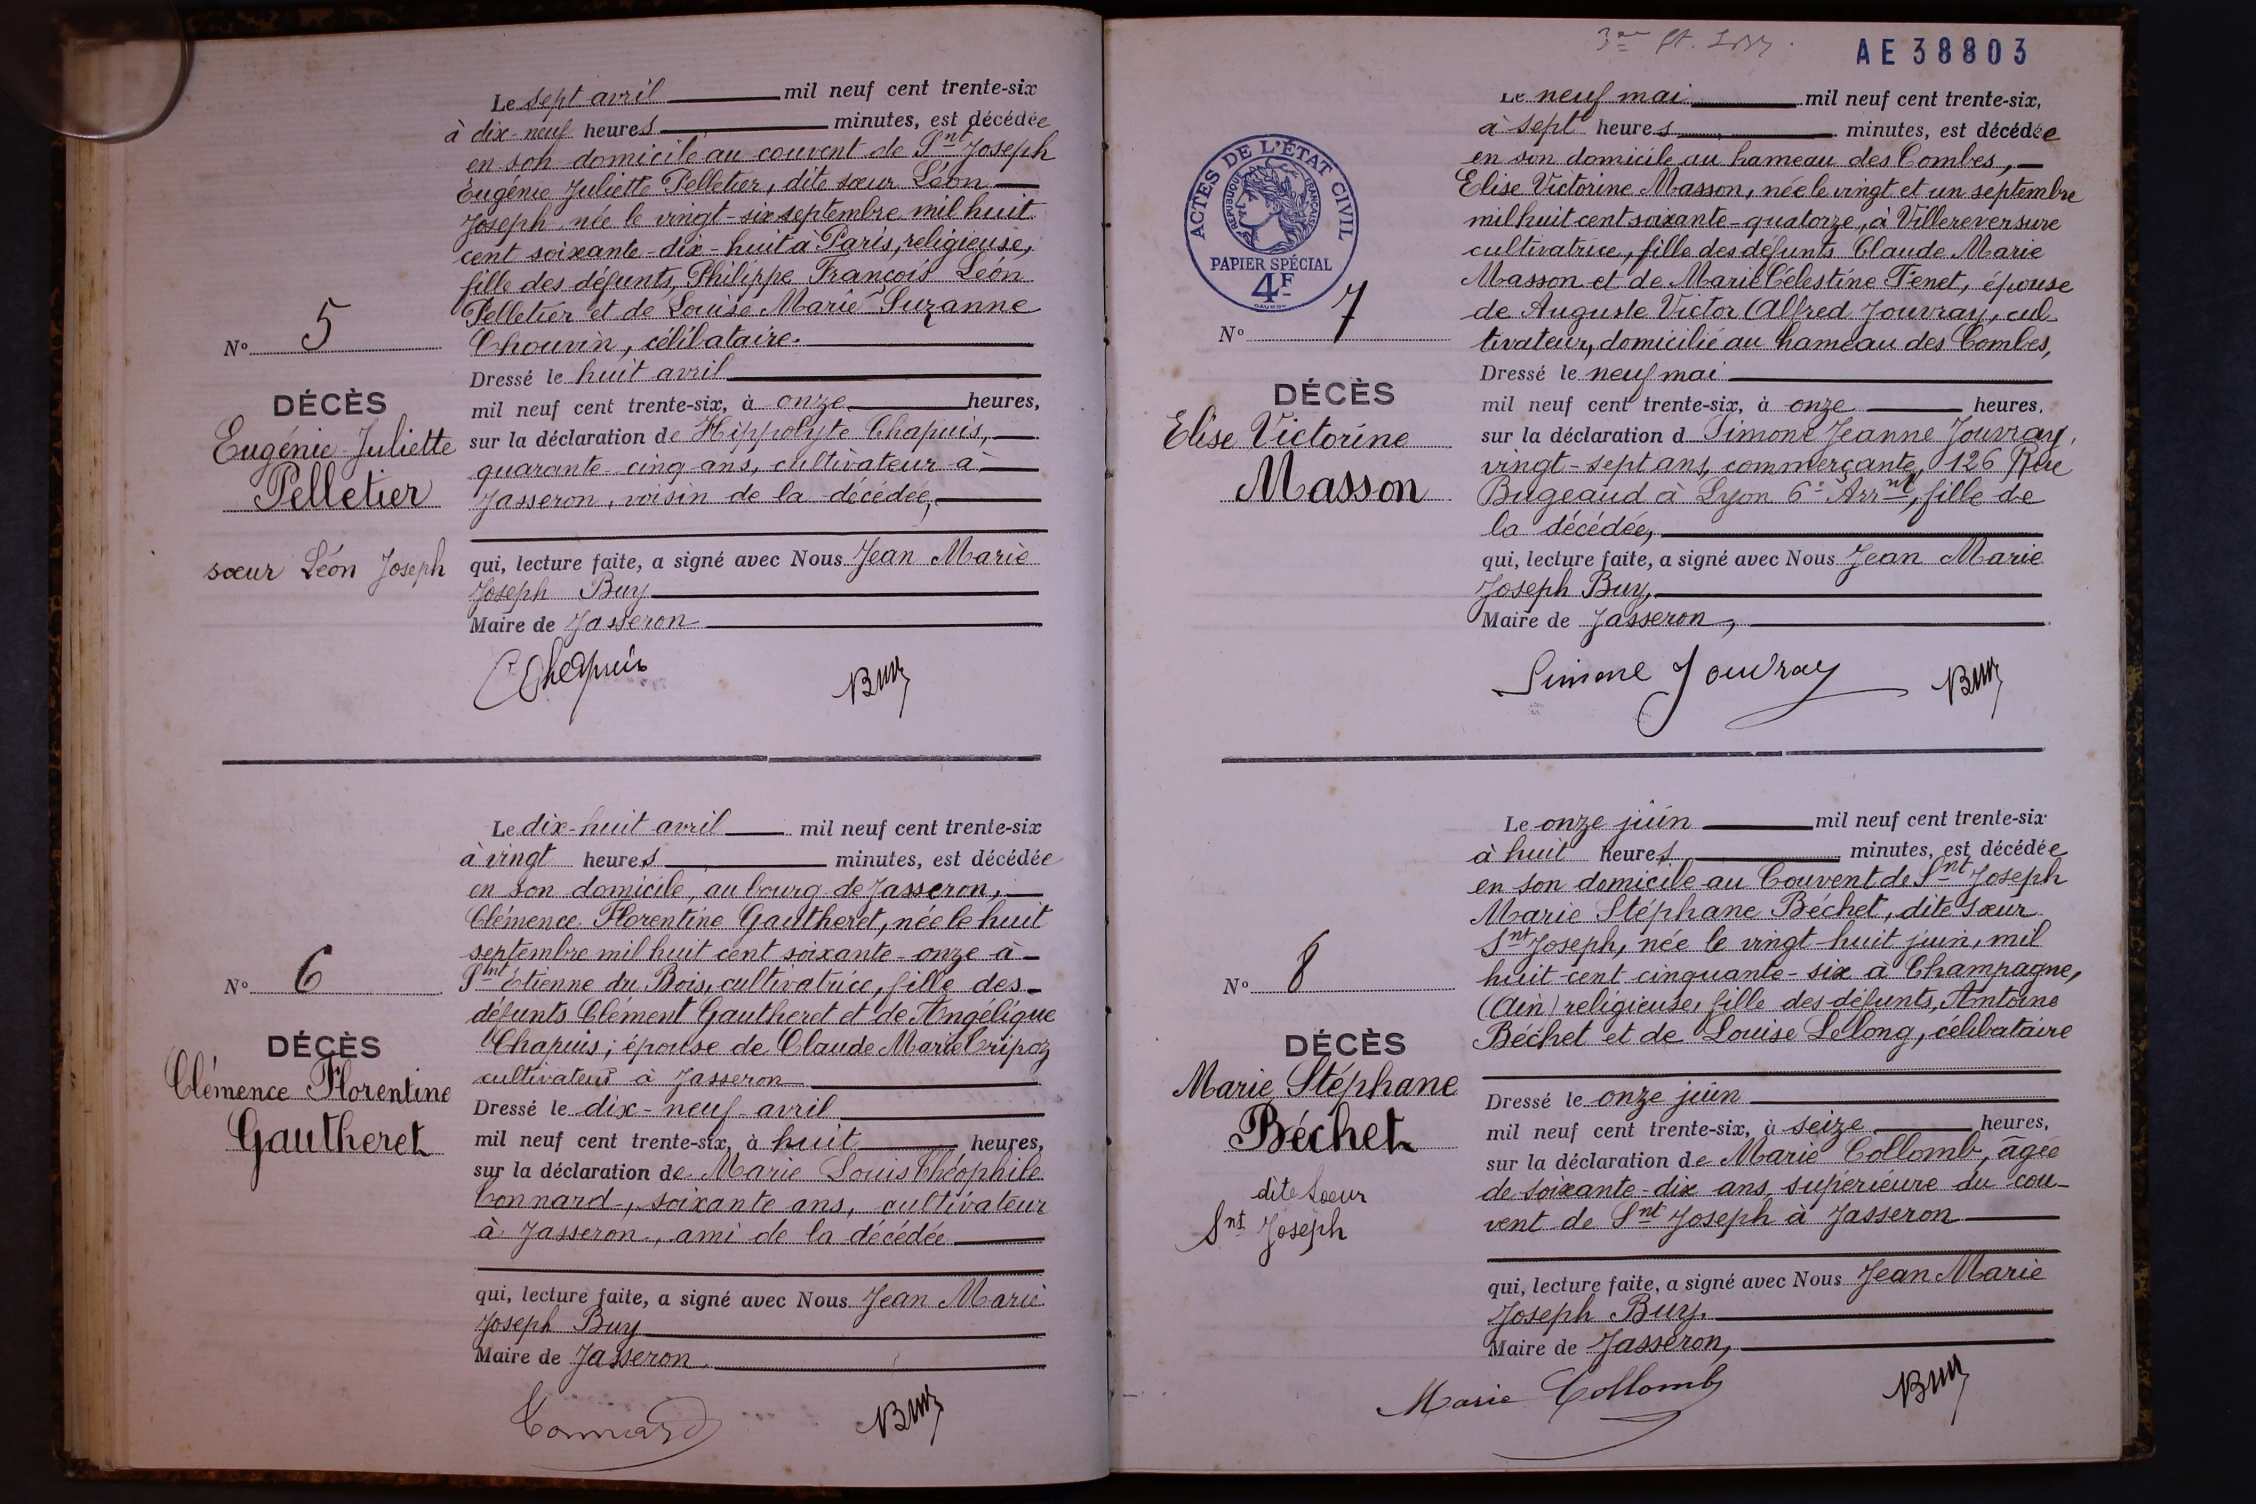 Le sept avril mil neuf cent trente-six
à dix-neuf heures minutes, est décédée
en son domicile au couvent de Snt Joseph
Eugénie Juliette Pelletier, dite sœur Léon
Joseph née le vingt-six septembre mil huit
cent soixante-dix-huit à Paris, religieuse,
fille des défunts, Philippe François Léon
Pelletier et de Louise Marie Suzanne
Chouvin, célibataire.
Dressé le huit avril
mil neuf cent trente-six, à onze heures,
sur la déclaration de Hippolyte Chapuis,
quarante cinq ans, cultivateur à
Jasseron, voisin de la décédée,
qui, lecture faite, a signé avec Nous Jean Marie
Joseph Buy
Maire de Jasseron
Chapuis Buy
No 5
DÉCÈS
Eugénie Juliette
Pelletier
sœur Léon Joseph
Le dix-huit avril mil neuf cent trente-six
à vingt heures minutes, est décédée
en son domicile, au bourg de Jasseron,
Clémence Florentine Gautheret, née le huit
septembre mil huit cent soixante-onze à
Snt Etienne du Bois, cultivatrice, fille des
défunts Clément Gautheret et de Angélique
Chapuis; épouse de Claude Marie Cripoz
cultivateur à Jasseron
Dressé le dix-neuf avril
mil neuf cent trente-six, à huit heures,
sur la déclaration de Marie Louis Théophile
Connard, soixante ans, cultivateur
à Jasseron, ami de la décédée
qui, lecture faite, a signé avec Nous Jean Marie
Joseph Buy
Maire de Jasseron
Connard Buy
No 6
DÉCÈS
Clémence Florentine
Gautheret
AE 38803
ACTES DE L'ÉTAT CIVIL
RÉPUBLIQUE FRANÇAISE
PAPIER SPÉCIAL
4F
Le neuf mai mil neuf cent trente-six,
à sept heures minutes, est décédée
en son domicile au hameau des Combes,
Elise Victorine Masson, née le vingt et un septembre
mil huit cent soixante-quatorze, à Villereversure
cultivatrice, fille des défunts Claude Marie
Masson et de Marie Célestine Tenet, épouse
de Auguste Victor Alfred Jouvray, cul
tivateur, domicilié au hameau des Combes,
Dressé le neuf mai
mil neuf cent trente-six, à onze heures,
sur la déclaration d Simone Jeanne Jouvray,
vingt-sept ans, commerçante, 126 Rue
Bugeaud à Lyon 6e Arrnt, fille de
la décédée,
qui, lecture faite, a signé avec Nous Jean Marie
Joseph Buy,
Maire de Jasseron,
Simone Jouvray Buy
No 7
DÉCÈS
Elise Victorine
Masson
Le onze juin mil neuf cent trente-six
à huit heures minutes, est décédée
en son domicile au Couvent de Snt Joseph
Marie Stéphane Béchet, dite sœur
Snt Joseph, née le vingt huit juin, mil
huit-cent cinquante-six à Champagne,
(Ain) religieuse, fille des défunts, Antoine
Béchet et de Louise Lelong, célibataire
Dressé le onze juin
mil neuf cent trente-six, à seize heures,
sur la déclaration de Marie Collomb, âgée
de soixante-dix ans, supérieure du cou-
vent de Snt Joseph à Jasseron
qui, lecture faite, a signé avec Nous Jean Marie
Joseph Buy.
Maire de Jasseron,
Marie Collomb Buy
No 8
DÉCÈS
Marie Stéphane
Béchet
dite Sœur
Snt Joseph